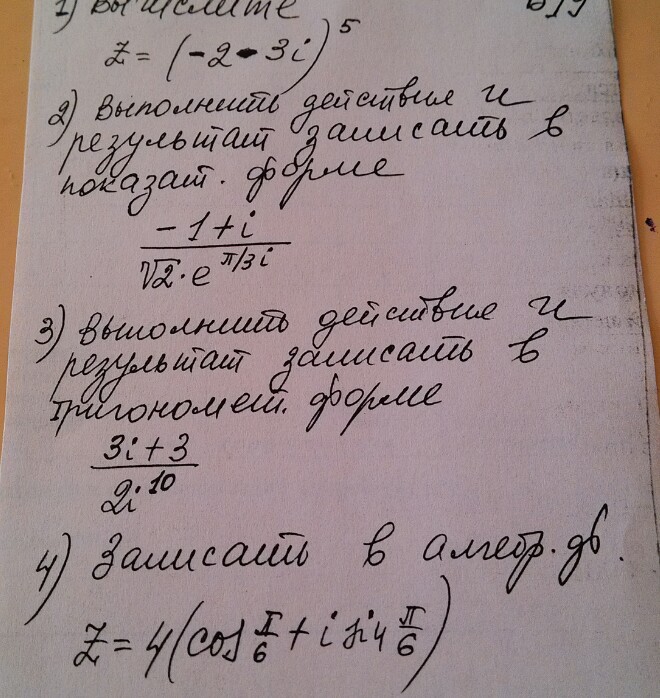 1) Вычислите
Z = (-2-3i)^5
2) Выполнить действие и
результат записать в
показат. форме
-1+i
√2·e^π/3 i
3) Выполнить действие и
результат записать в
тригономет. форме
3i+3
2i^10
4) Записать в алгебр. ф.
Z = 4(cos π/6 + i sin π/6)